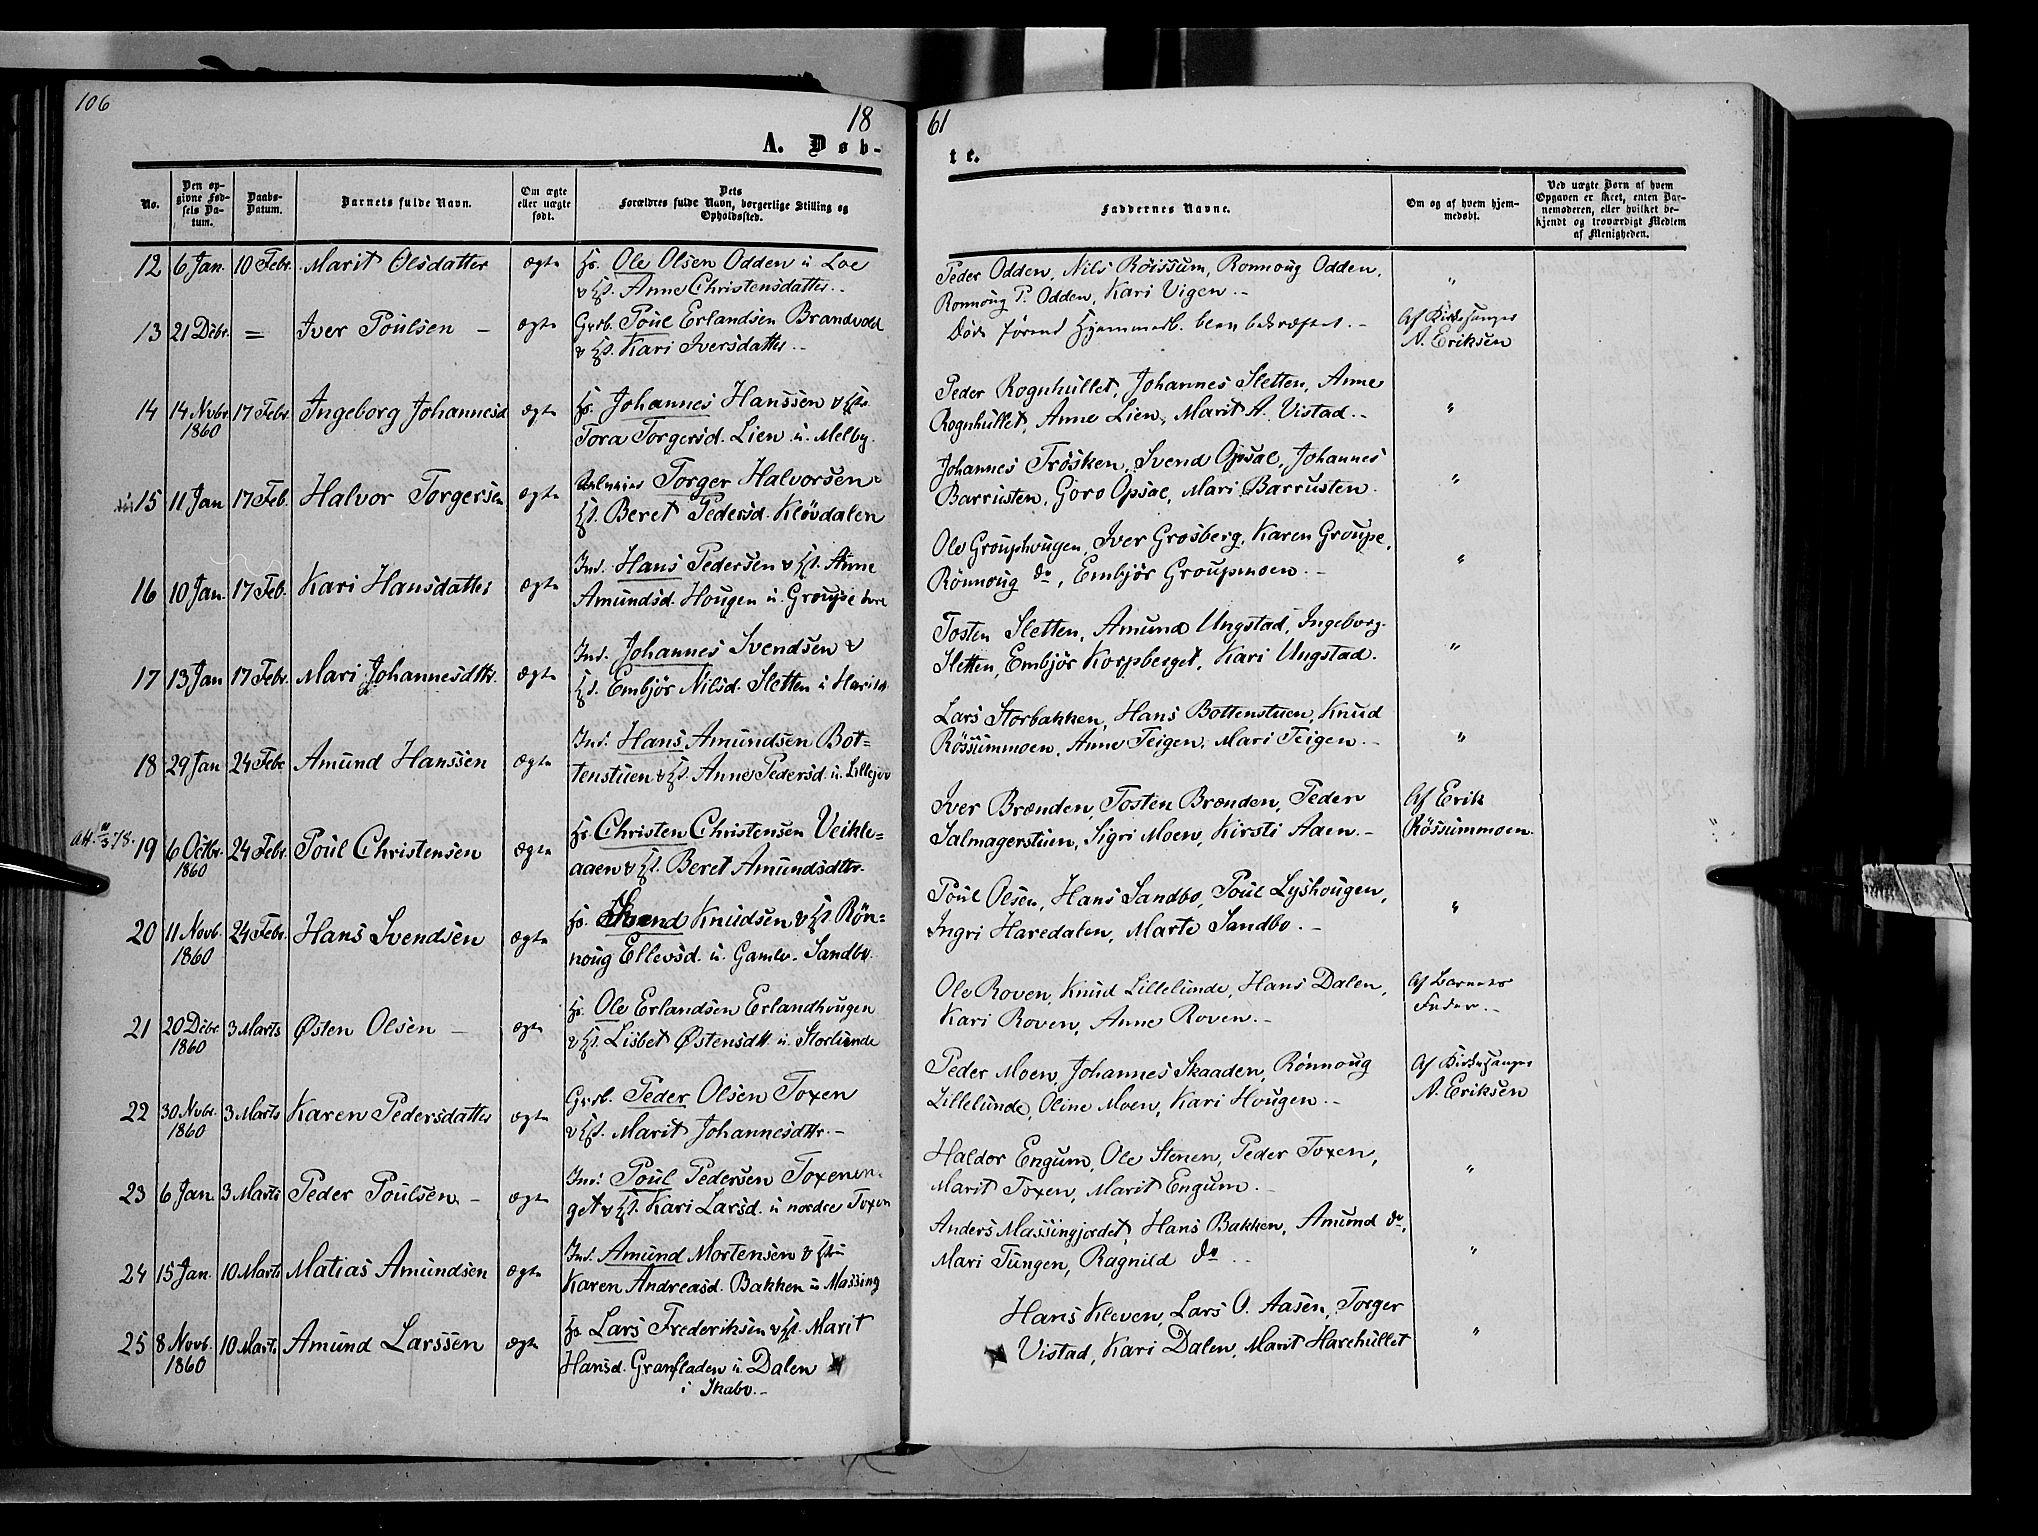 106
18
61
A. Døb-
te.
No.
Den op-
givne Fød-
sels Da-
tum.
Daabs-
Datum.
Barnets fulde Navn.
Om ægte
eller uægte
født.
Dets
Forældres fulde Navn, borgerlige Stilling og
Opholdssted.
Faddernes Navne.
Om og af hvem hjem-
medøbt.
Ved uægte Børn af hvem
Opgaven er skeet, enten Bar-
nemoderen, eller hvilket be-
kjendt og troværdigt Medlem
af Menigheden.
12 6 Jan. 10 Febr. Marit Olsdatter ægte Hs. Ole Olsen Odden u Loe
& Hst. Anne Christensdatter.-
Peder Odden, Nils Röissum, Ronnoug Odden,
Ronnoug P. Odden, Kari Vigen.- "
13 21 Debr. = Iver Poulsen - ægte Grb. Poul Erlandsen Brandvold
& Hst. Kari Iversdatter.-
Døde førend Hjemmed. blev bekræftet.- Af Kirkesanger
N. Eriksen
14 14 Novbr. 17 Febr. Ingeborg Johannesd ægte Hs. Johannes Hanssen & Hst.
1860 Tora Torgersd. Lien u. Melby.
Peder Rognhullet, Johannes Sletten, Anne
Rognhullet, Anne Lien, Marit A. Vistad.- "
15 11 Jan 17 Feb. Halvor Torgersen ægte Torger Halvorsen &
Hst. Beret Pedersd. Klövdalen
Johannes Trösken, Svend Opsal, Johannes
Barrusten, Goro Opsal, Mari Barrusten. "
16 10 Jan. 17 Feb. Kari Hansdatter ægte Ind. Hans Pedersen & Hst. Anne
Amundsd. Hougen u. Groupe
Ole Grouphougen, Iver Grosberg, Karen Groupe,
Rönnoug do, Embjör Groupmoen.- "
17 13 Jan 17 Febr. Mari Johannesdtr. ægte Ind. Johannes Svendsen &
Hst. Embjör Nilsd. Sletten u Harild
Tosten Sletten, Amund Ungstad, Ingeborg
Sletten, Embjör Korpberget, Kari Ungstad. "
18 29 Jan 24 Febr Amund Hanssen ægte Ind. Hans Amundsen Bot-
tenstuen & Hst. Anne Pedersd. u. Lillejor
Lars Storbakken, Hans Bottenstuen, Knud
Rössummoen, Anne Teigen, Mari Teigen.- "
att. 11/3 78. 19 6 Octbr. 24 Febr. Poul Christensen ægte Hs. Christen Christensen Veikle-
1860 aaen & Hst. Beret Amundsdtr.
Iver Brænden, Tosten Brænden, Peder
Salmagerstuen, Sigri Moen, Kirsti Aaen.- Af Erik
Rössummoen.
20 11 Novb. 24 Febr. Hans Svendsen ægte Hs. Svend Knudsen & Hst. Rön-
1860 noug Ellevsd. u. Gamlv. Sandbo.
Poul Olsen, Hans Sandbo, Poul Lyshougen,
Ingri Haredalen, Marte Sandbo.- "
21 20 Debr 3 Marts Østen Olsen - ægte Hs. Ole Erlandsen Erlandhougen
1860 & Hst. Lisbet Østensdtr. u. Storlunde
Ole Roven, Knud Lillelunde, Hans Dalen,
Kari Roven, Anne Roven.- Af Barnets
Fader.-
22 30 Novbr. 3 Marts Karen Pedersdatter ægte Grb. Peder Olsen Toxen
1860 & Hst. Marit Johannesdtr.-
Peder Moen, Johannes Skaaden, Rönnoug
Lillelunde, Oline Moen, Kari Hougen.- Af Kirkesanger
N. Eriksen
23 6 Jan. 3 Marts Peder Poulsen - ægte Ind. Poul Pedersen Toxen
get & Hst. Kari Larsd. u nordre Toxen
Haldor Engum, Ole Stenen, Peder Toxen,
Marit Toxen, Marit Engum.- "
24 15 Jan. 10 Marts Matias Amundsen ægte Ind. Amund Mortensen &
Karen Andreasd. Bakken u Massing
Anders Massingjordet, Hans Bakken, Amund do,
Mari Tungen, Ragnild do.- "
25 8 Novb. 10 Marts Amund Larssen ægte Hs Lars Frederiksen & Hst. Marit
1860 Hansd. Granfladen u Dalen
i Skabo.-
Hans Kleven, Lars O. Aasen, Torger
Vistad, Kari Dalen, Marit Harehullet "